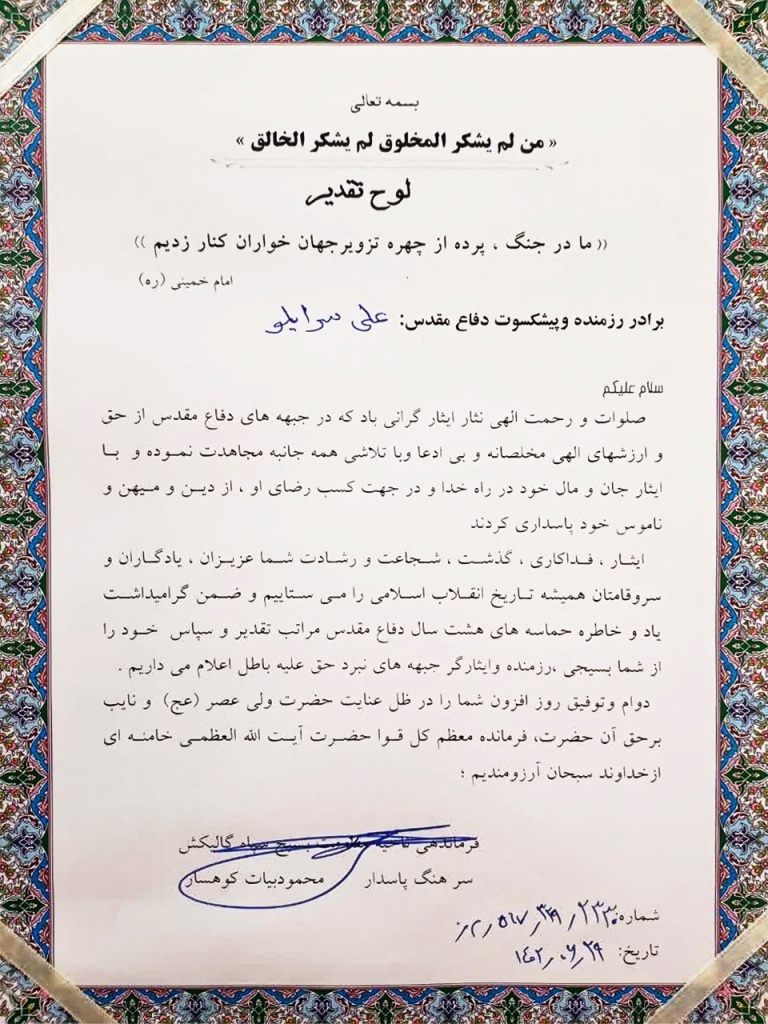 بسمه تعالی
« من لم یشکر المخلوق لم یشکر الخالق »
لوح تقدیر
(( ما در جنگ ، پرده از چهره تزویرجهان خواران کنار زدیم ))
امام خمینی (ره)
برادر رزمنده وپیشکسوت دفاع مقدس: علی سرایلو
سلام علیکم
صلوات و رحمت الهی نثار ایثار گرانی باد که در جبهه های دفاع مقدس از حق
و ارزشهای الهی مخلصانه و بی ادعا وبا تلاشی همه جانبه مجاهدت نموده و با
ایثار جان و مال خود در راه خدا و در جهت کسب رضای او ، از دین و میهن و
ناموس خود پاسداری کردند
ایثار ، فداکاری ، گذشت ، شجاعت و رشادت شما عزیزان ، یادگاران و
سروقامتان همیشه تاریخ انقلاب اسلامی را می ستاییم و ضمن گرامیداشت
یاد و خاطره حماسه های هشت سال دفاع مقدس مراتب تقدیر و سپاس خود را
از شما بسیجی ،رزمنده وایثارگر جبهه های نبرد حق علیه باطل اعلام می داریم .
دوام وتوفیق روز افزون شما را در ظل عنایت حضرت ولی عصر (عج) و نایب
برحق آن حضرت، فرمانده معظم کل قوا حضرت آیت الله العظمی خامنه ای
ازخداوند سبحان آرزومندیم ؛
فرماندهی ناحیه مقاومت بسیج سپاه گالیکش
سرهنگ پاسدار محمودبیات کوهسار
شماره:
تاریخ: ۱۴۰۲/۰۶/۲۹